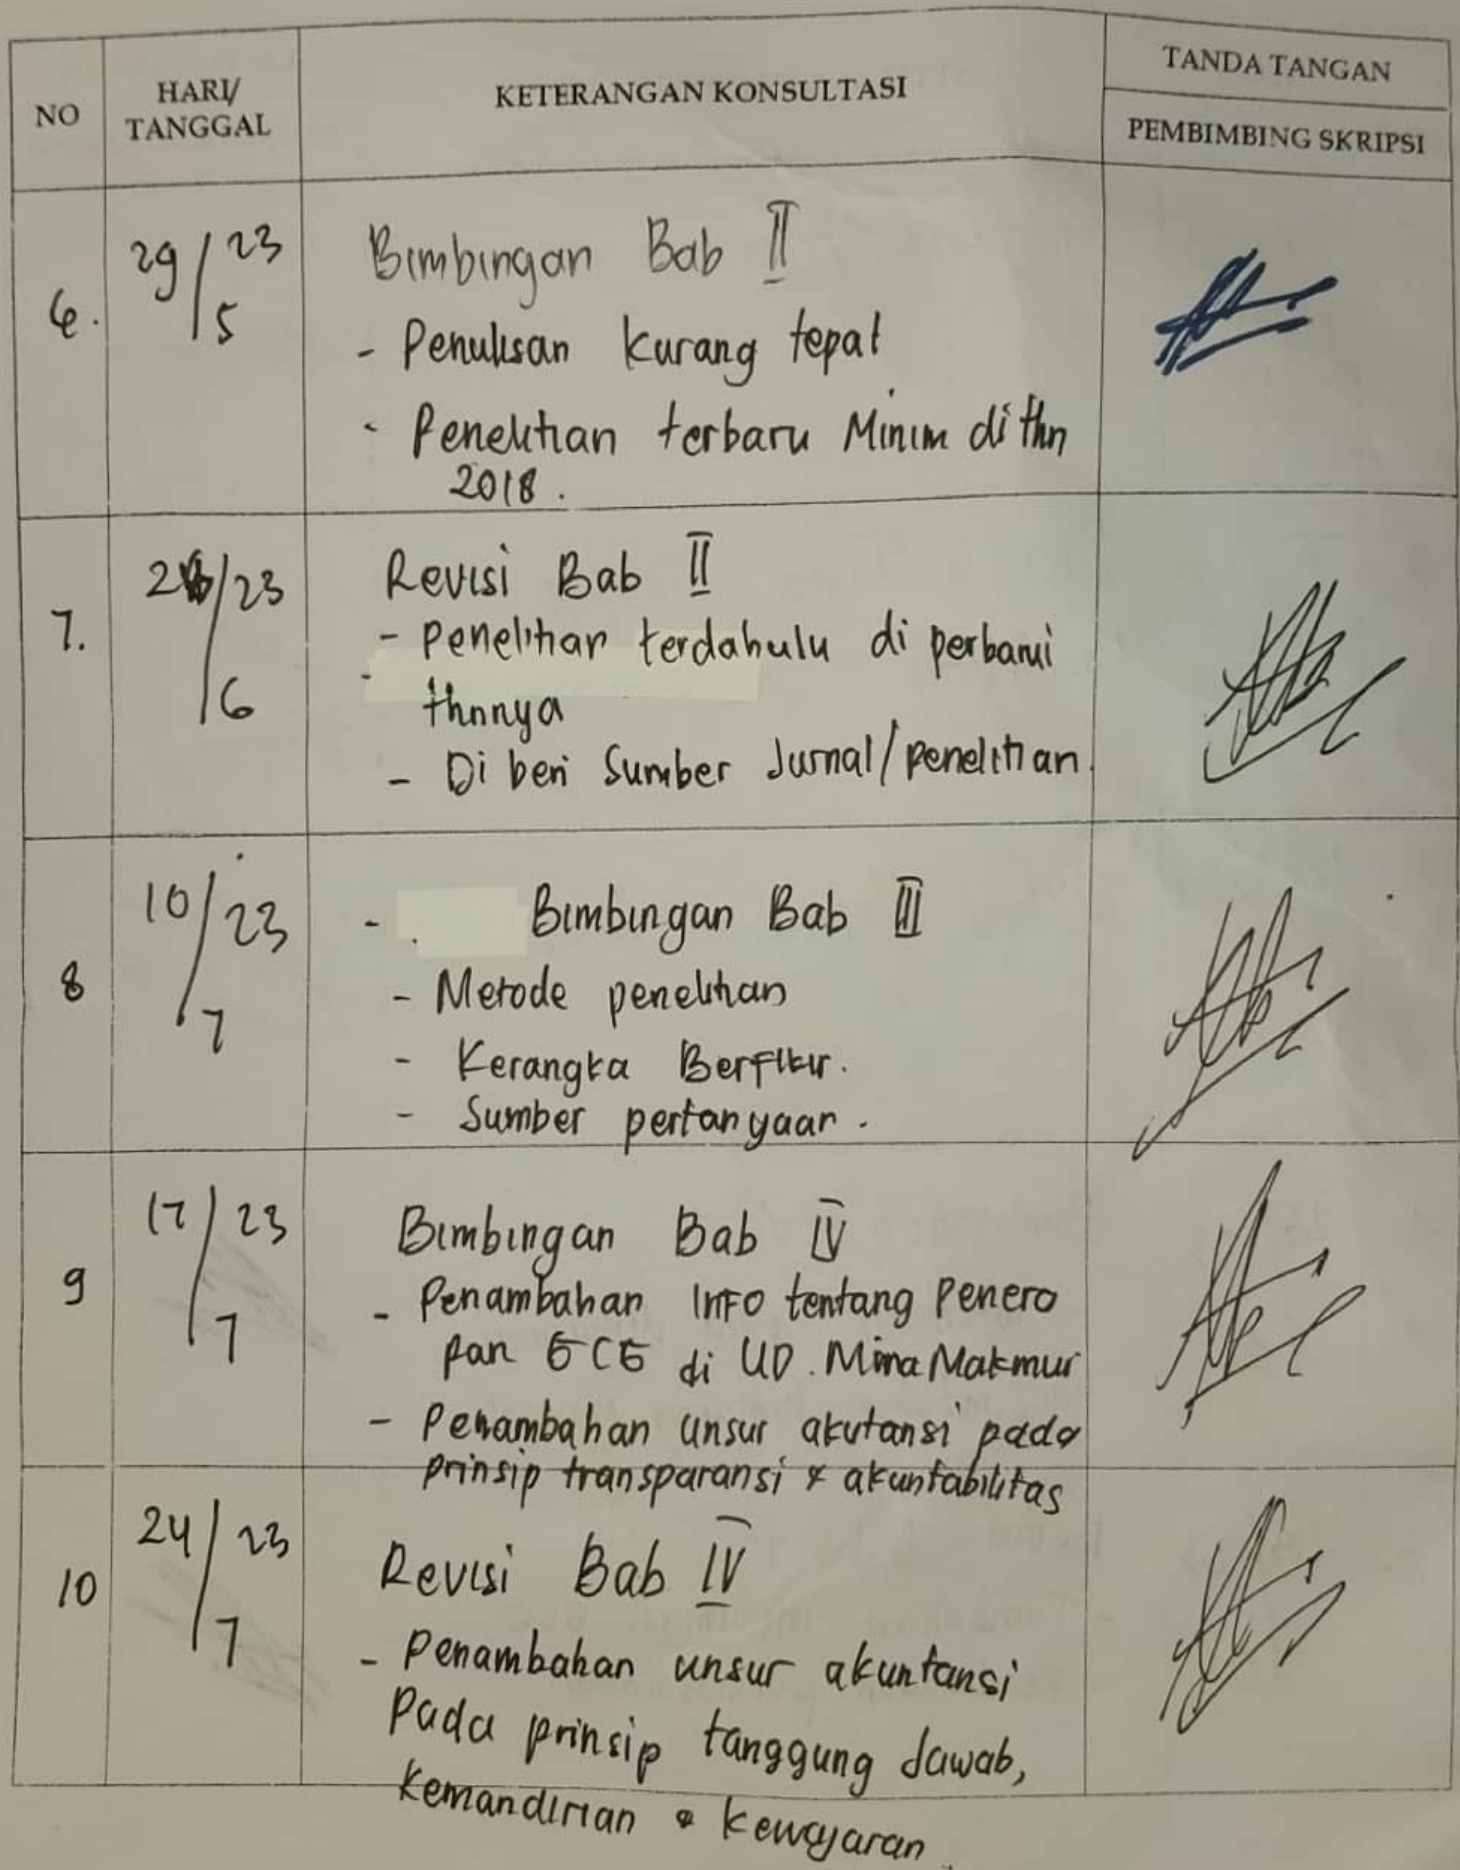 NO
HARI/
TANGGAL
KETERANGAN KONSULTASI
TANDA TANGAN
PEMBIMBING SKRIPSI
6.
29/23
5
Bimbingan Bab II
- Penulisan kurang tepat
- Penelitian terbaru Minim di thn
2018.
7.
/23
6
Revisi Bab II
- Penelitian terdahulu di perbarui
thnnya
- Di beri Sumber Jurnal/penelitian.
8
10/23
7
- Bimbingan Bab III
- Metode penelitian
- Kerangka Berfikir.
- Sumber pertanyaan.
9
17/23
7
Bimbingan Bab IV
- Penambahan INFO tentang Penera
pan GCG di UD. Mina Makmur
- Penambahan unsur akutansi pada
prinsip transparansi & akuntabilitas
10
24/23
7
Revisi Bab IV
- Penambahan unsur akuntansi
Pada prinsip tanggung Jawab,
Kemandirian & Kewajaran